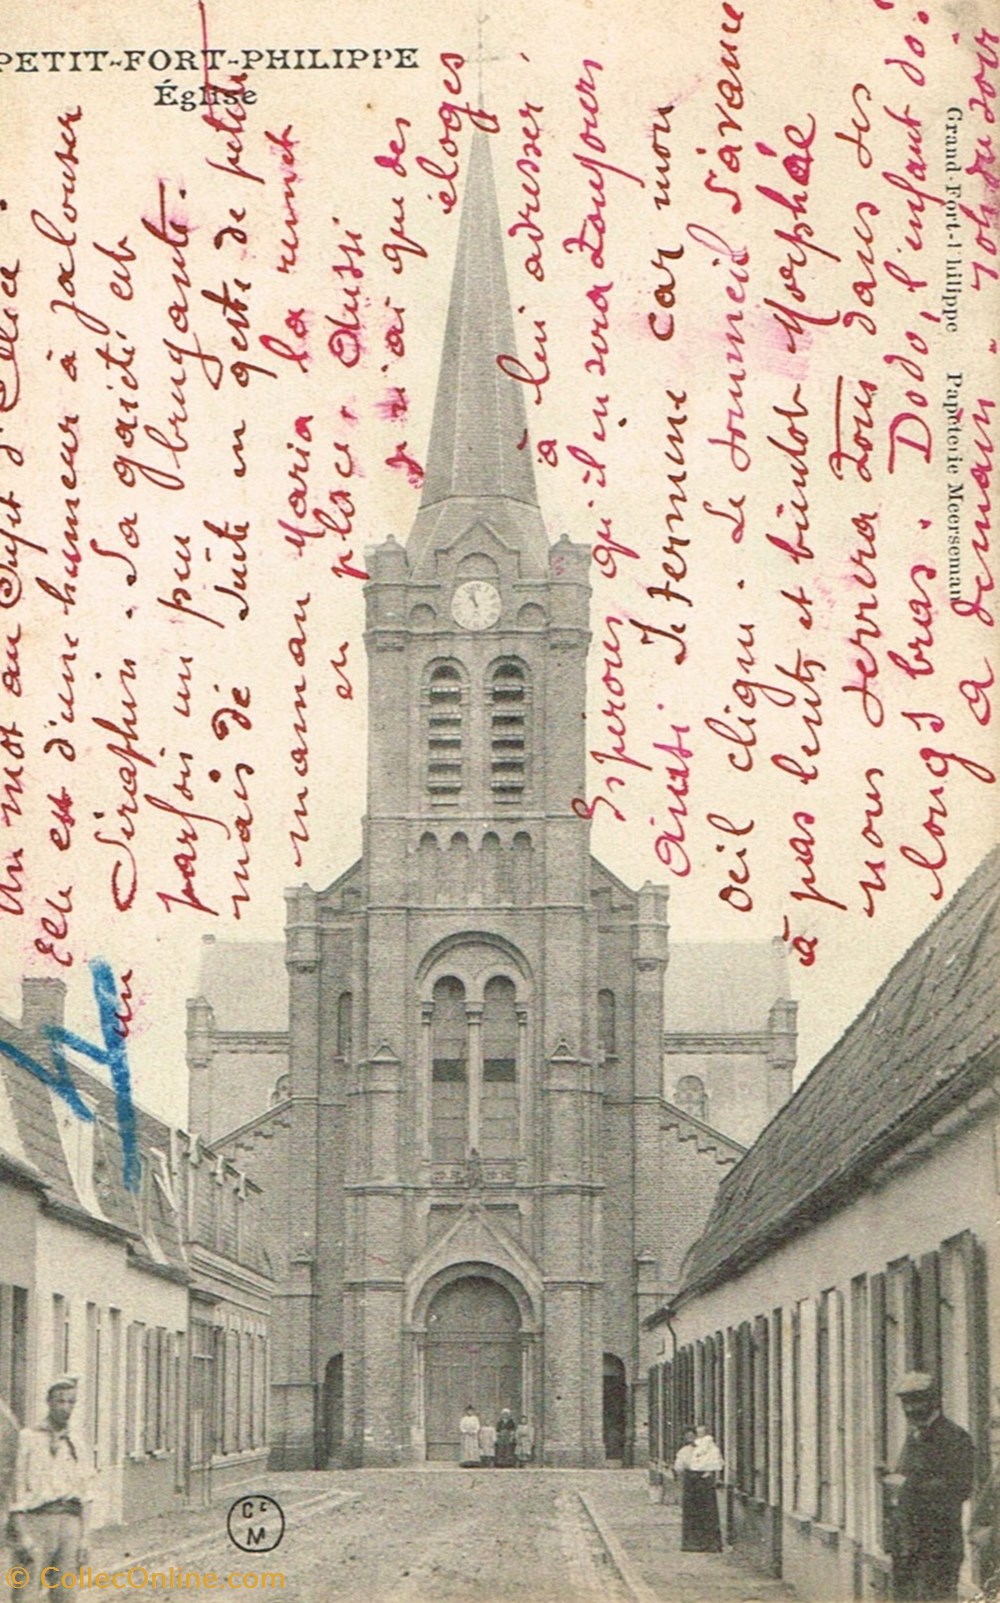 PETIT-FORT-PHILIPPE
Église
un mot au sujet d'Alice.
Elle est d'une humeur à jalouser
un Séraphin. Sa gaieté est
parfois un peu bruyante.
mais de suite un geste de petite
maman Maria la remet
en place. Aussi
je n'ai que des
éloges
à lui adresser.
Espérons qu'il en sera toujours
ainsi Je termine car mon
œil cligne. Le sommeil s'avance
à pas lents et bientot Morphée
nous serrera tous dans ses
longs bras. Dodo, l'enfant do!
A demain
Grand-Fort-Philippe Papeterie Meerseman
Cie
M
© CollecOnline.com